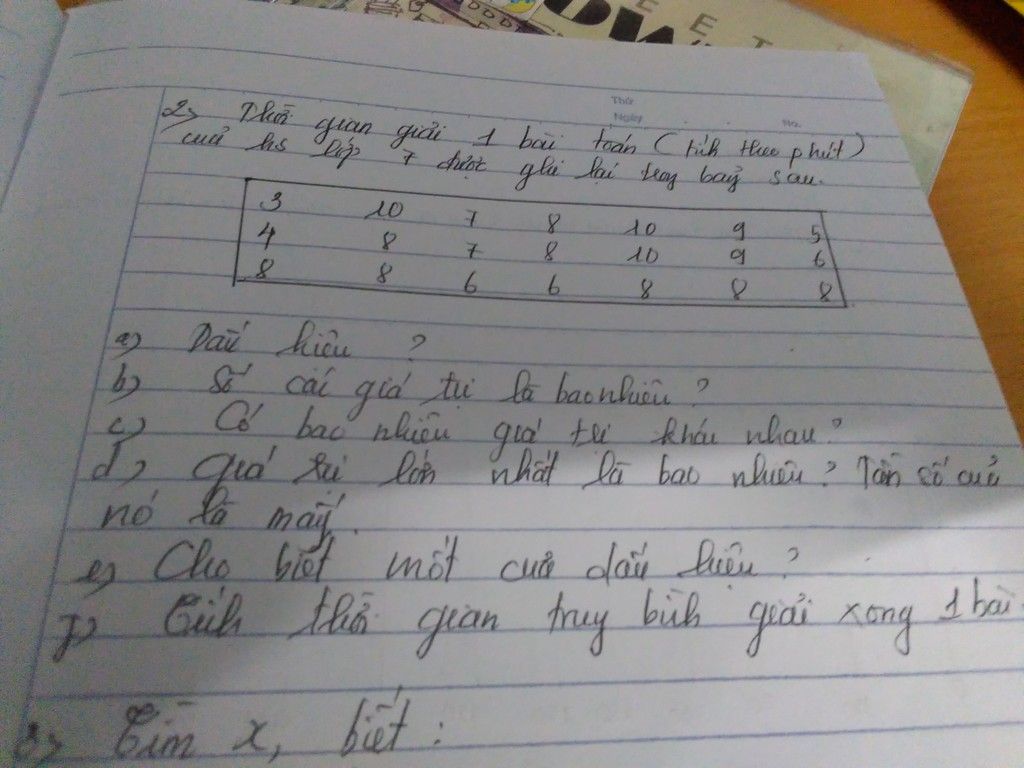 OW
E E T
Thứ
Ngày
No.
2) Thời gian giải 1 bài toán (tính theo phút)
của hs lớp 7 được ghi lại trog bảg sau.
3 10 7 8 10 9 5
4 8 7 8 10 9 6
8 8 6 6 8 8 8
a) Dấu hiệu ?
b) Số các giá trị là bao nhiêu ?
c) Có bao nhiêu giá trị khác nhau ?
d) Giá trị lớn nhất là bao nhiêu ? Tần số của
nó là mấy.
e) Cho biết mốt của dấu hiệu ?
f) Tính thời gian trug bình giải xong 1 bài.
3) Tìm x, biết :